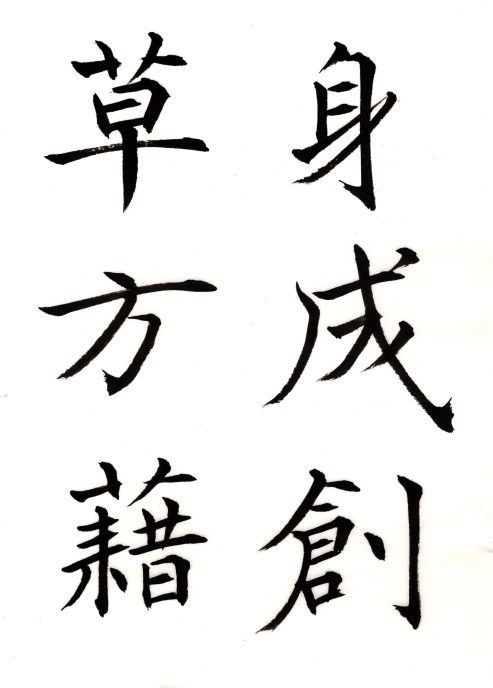 身成創
草方藉